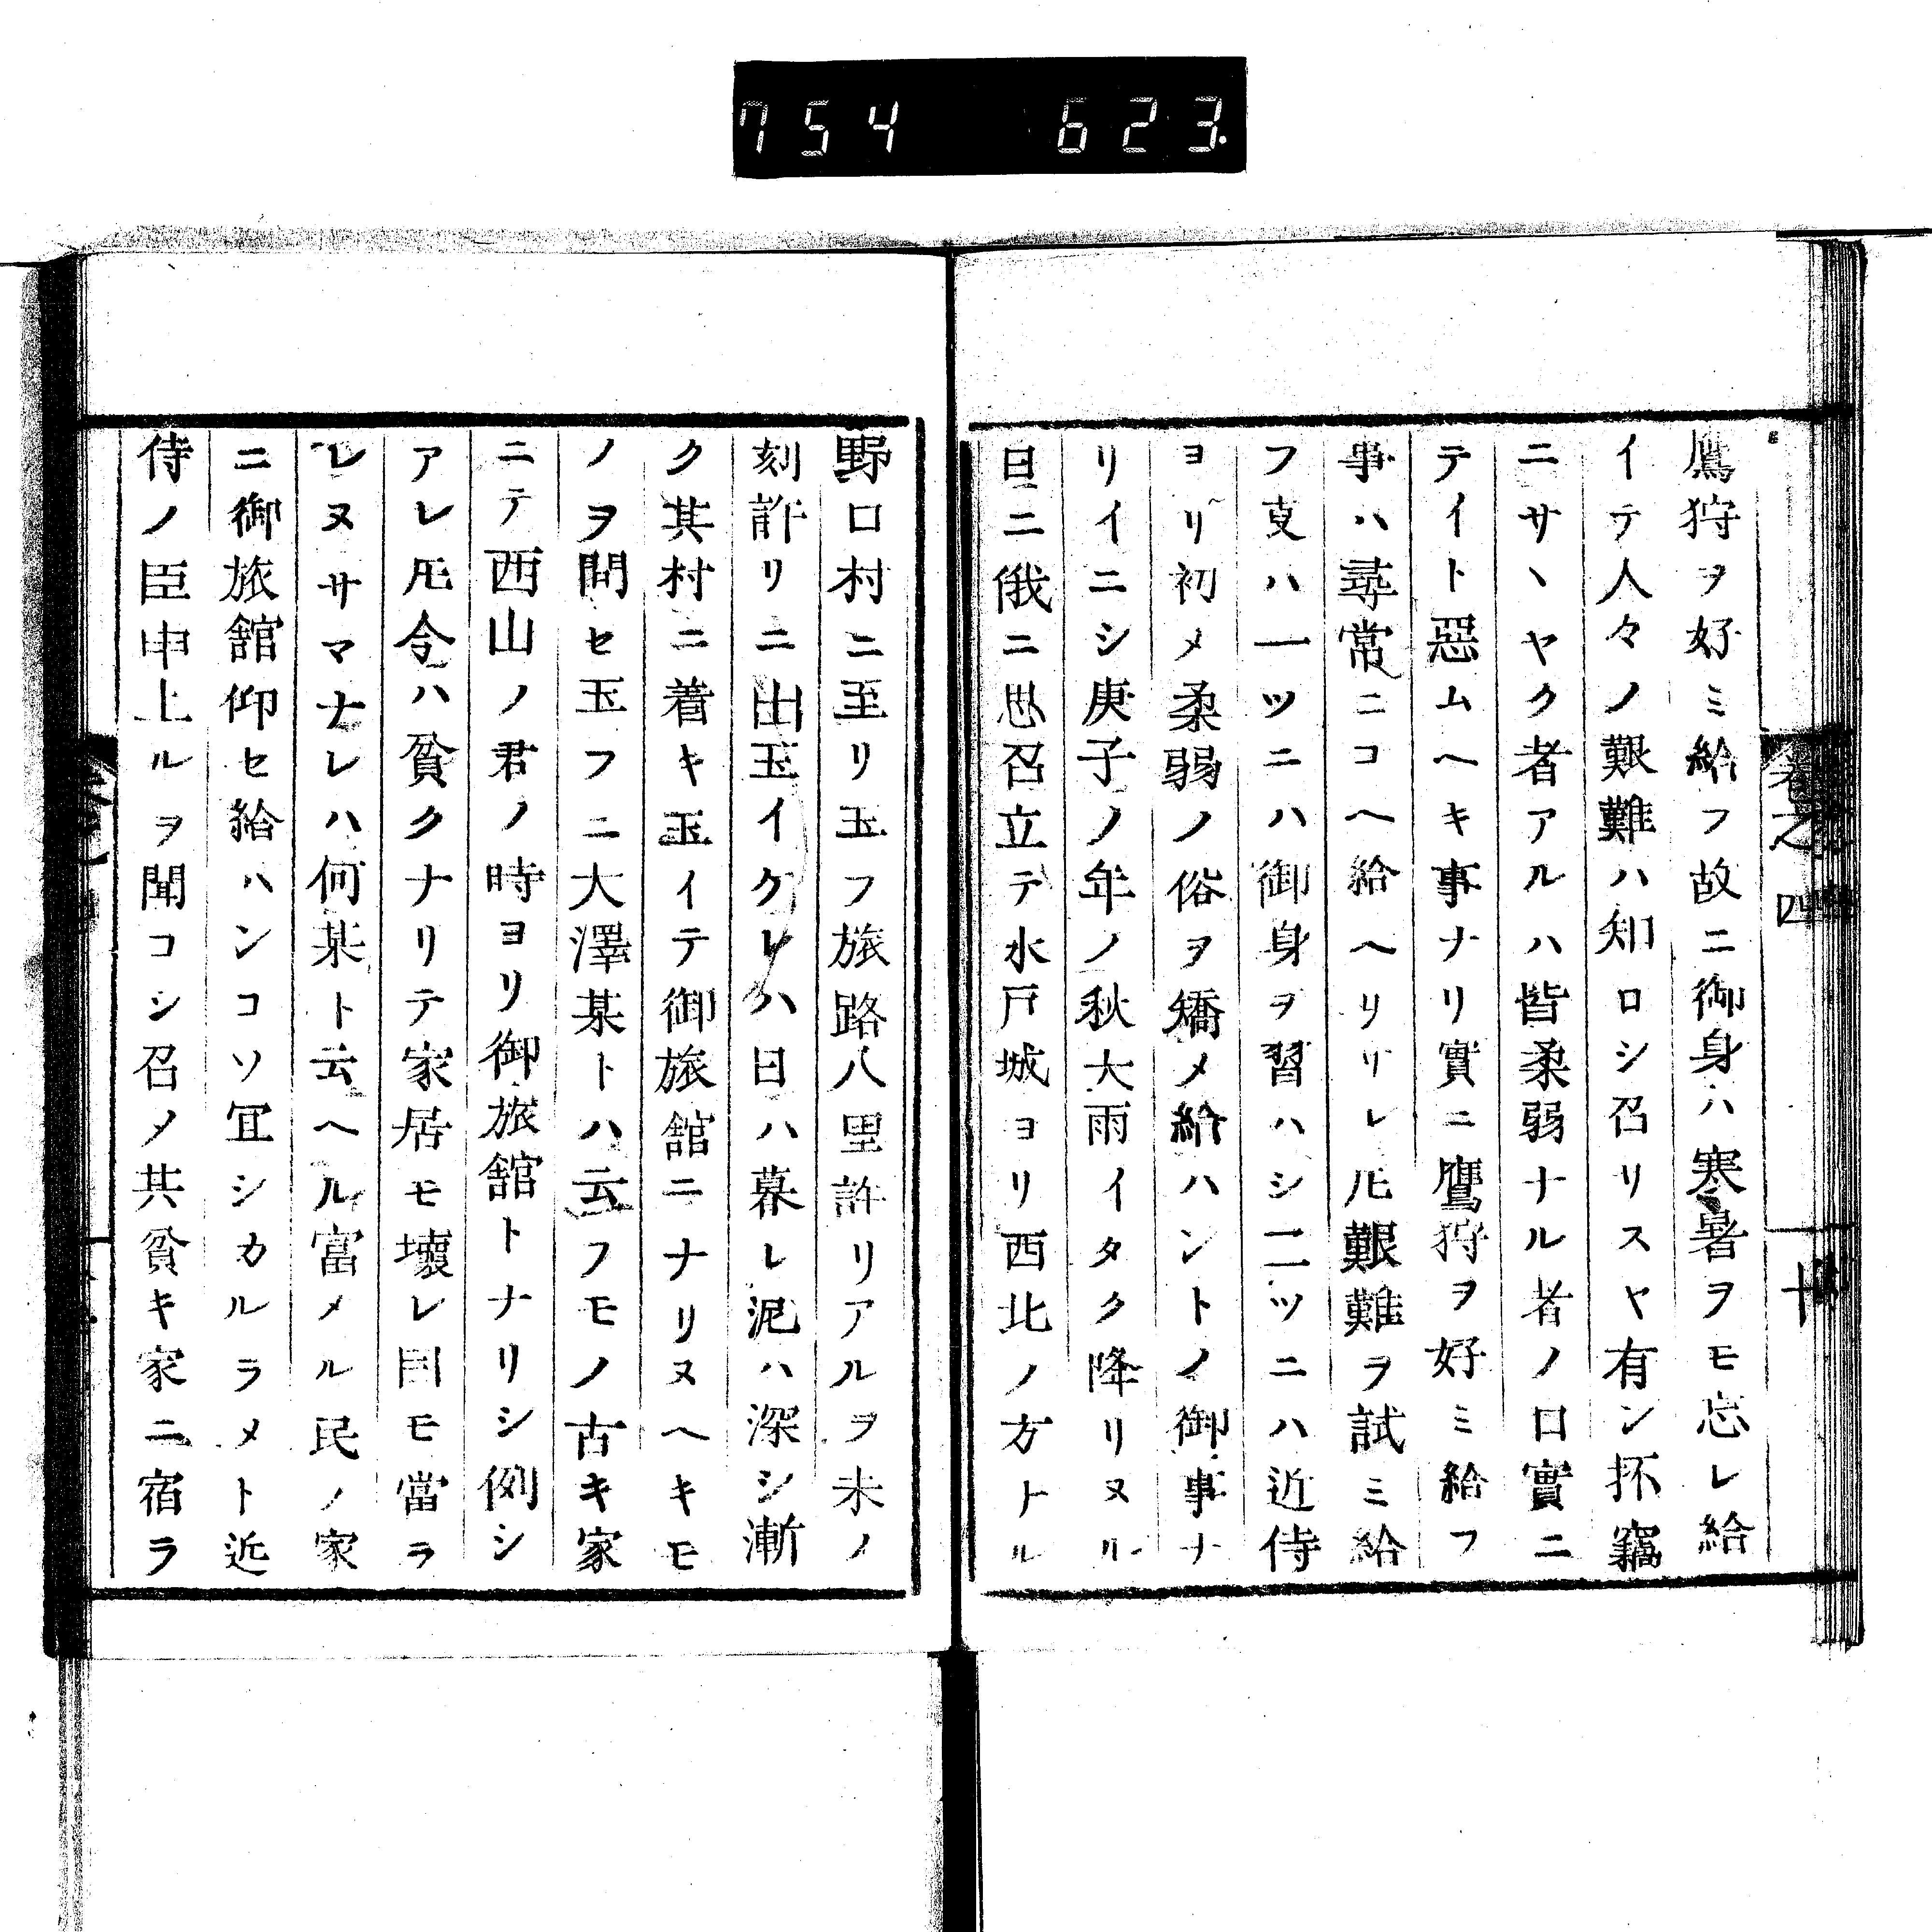 754 623.
巻之四
十
鷹狩ヲ好ミ給フ故ニ御身ハ寒暑ヲモ忘レ給
イテ人々ノ艱難ハ知ロシ召リスヤ有ン抔竊
ニサヽヤク者アルハ皆柔弱ナル者ノ口實ニ
テイト惡ムヘキ事ナリ實ニ鷹狩ヲ好ミ給フ
事ハ尋常ニコヘ給ヘリリレ𪜈艱難ヲ試ミ給
フ叓ハ一ツニハ御身ヲ習ハシ二ツニハ近侍
ヨリ初メ柔弱ノ俗ヲ矯メ給ハントノ御事ナ
リイニシ庚子ノ年ノ秋大雨イタク降リヌル
日ニ俄ニ思召立テ水戸城ヨリ西北ノ方トル
野口村ニ至リ玉フ旅路八里許リアルヲ未ノ
刻許リニ出玉イケレハ日ハ暮レ泥ハ深シ漸
ク其村ニ着キ玉イテ御旅館ニナリヌヘキモ
ノヲ問セ玉フニ大澤某トハ云フモノ古キ家
ニテ西山ノ君ノ時ヨリ御旅館トナリシ例シ
アレ𪜈今ハ貧クナリテ家居モ壞レ田モ當ラ
レヌサマナレハ何某ト云ヘル富メル民ノ家
ニ御旅館仰セ給ハンコソ宜シカルラメト近
侍ノ臣申上ルヲ聞コシ召メ其貧キ家ニ宿ラ